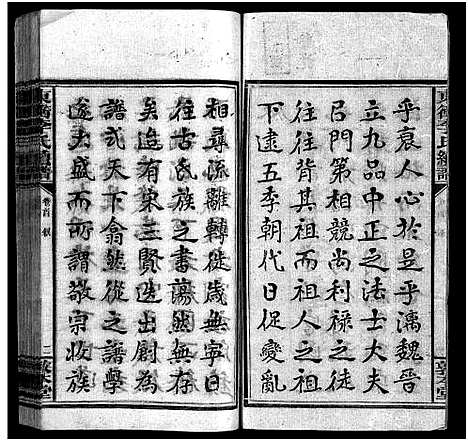 乎衰人心於是乎漓魏晉
立九品中正之法士大夫
以門第相競尚利祿之徒
往往背其祖而祖人之祖
下逮五季朝代日促變亂
相尋流離轉徙歲無寧日
往古氏族之書蕩然無存
矣迨有宋三賢迭出尉為
譜式天下翕然從之譜學
遂大盛而所謂敬宗收族
卷首 敘
二